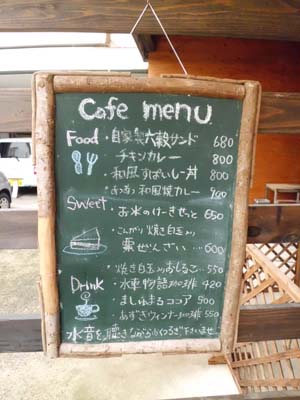 Cafe menu
Food ・自家製六穀サンド 680
・チキンカレー 800
・和風すぱいしー丼 800
・和風焼カレー 900
Sweet ・お米のけーきせっと 650
・こんがり焼き白玉
栗ぜんざい…600
・焼き白玉のおしるこ 550
Drink ・水車物語珈琲 420
・ましゅまろココア 500
・あずきウィンナー珈琲 550
水音を聴きながらおくつろぎ下さいませ